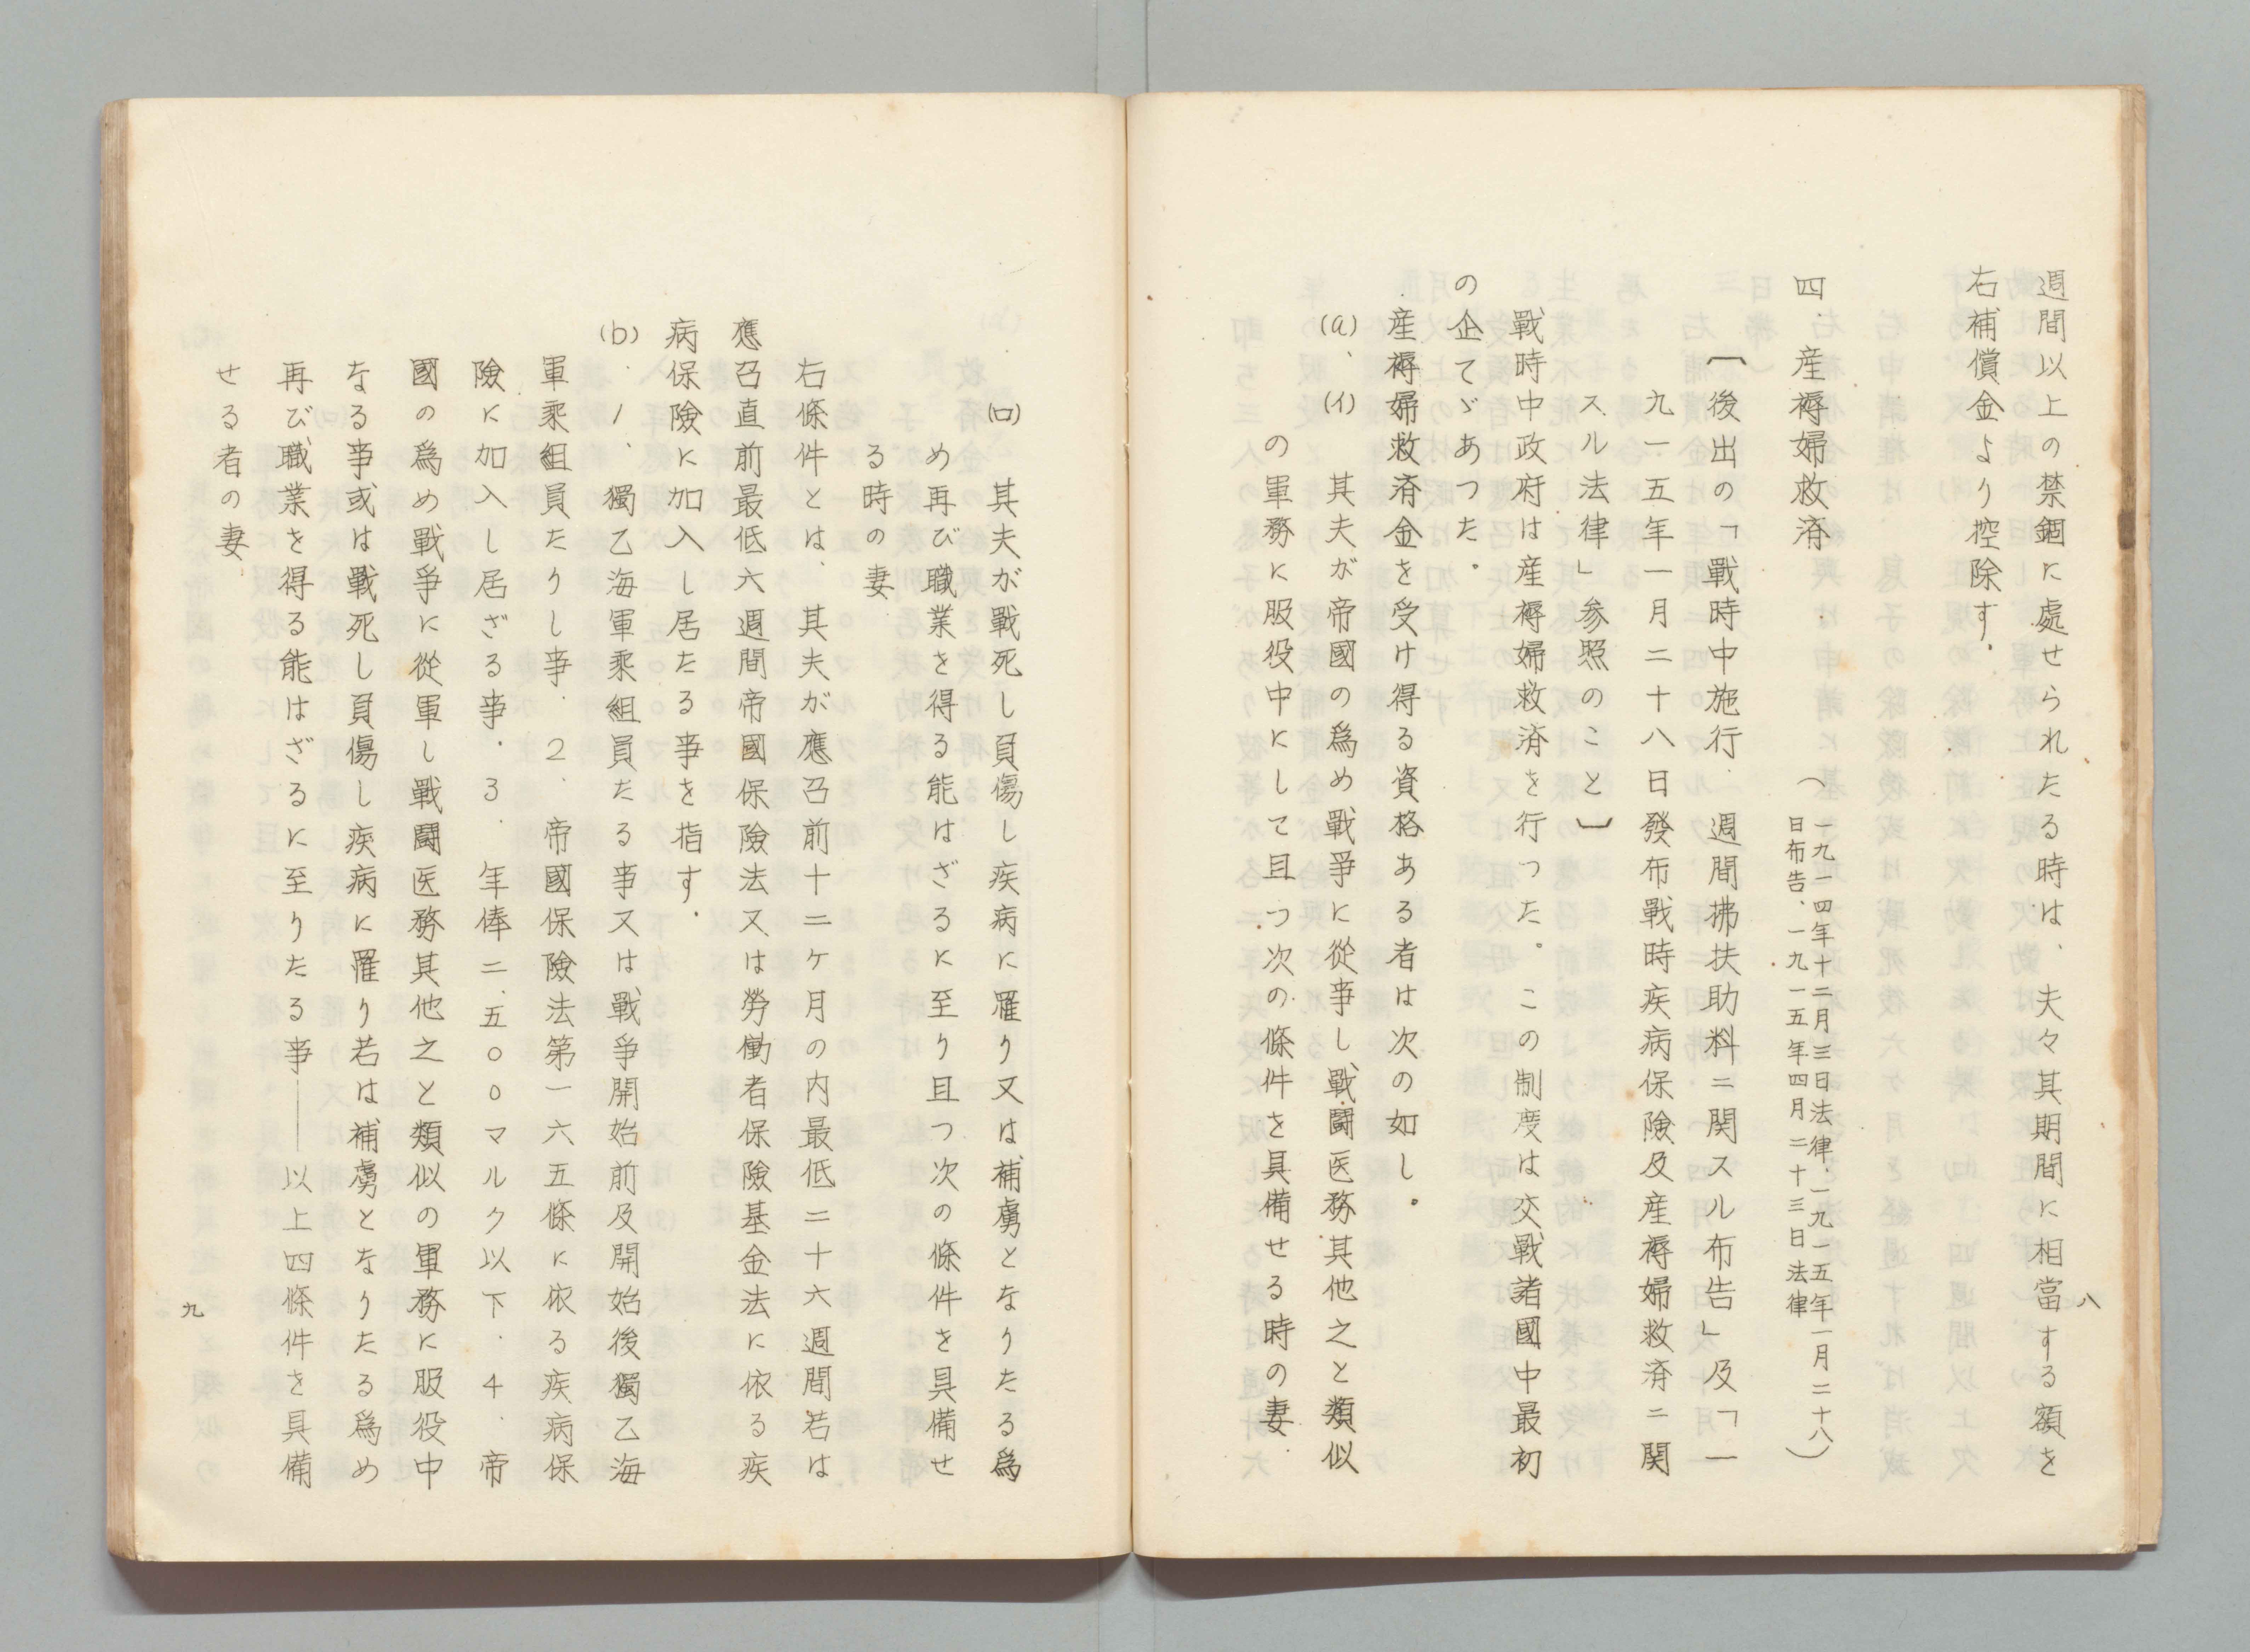 週間以上の禁錮に處せられたる時は、夫々其期間に相當する額を
右補償金より控除す.
四. 産褥婦救済. (一九一四年十二月三日法律.一九一五年一月二十八
日布告、一九一五年四月二十三日法律)
〔後出の「戰時中施行 週間拂扶助料ニ関スル布告」及「一
九一五年一月二十八日發布戰時疾病保険及産褥婦救済ニ関
スル法律」参照のこと〕
戰時中政府は産褥婦救済を行つた。この制度は交戰諸國中最初
の企てゞあつた。
産褥婦救済金を受け得る資格ある者は次の如し。
(a)、(イ) 其夫が帝國の爲め戰爭に從事し戰鬪医務其他之と類似
の軍務に服役中にして且つ次の條件を具備せる時の妻.
八
(ロ) 其夫が戰死し負傷し疾病に罹り又は補虜となりたる爲
め再び職業を得る能はざるに至り且つ次の條件を具備せ
る時の妻.
右條件とは、其夫が應召前十二ケ月の内最低二十六週間若は
應召直前最低六週間帝國保險法又は勞働者保險基金法に依る疾
病保險に加入し居たる事を指す.
(b). 1、獨乙海軍乘組員たる事又は戰爭開始前及開始後獨乙海
軍乘組員たりし事. 2、帝國保險法第一六五條に依る疾病保
險に加入し居ざる事. 3. 年俸二、五〇〇マルク以下. 4. 帝
國の爲め戰爭に從軍し戰鬪医務其他之と類似の軍務に服役中
なる事或は戰死し負傷し疾病に罹り若は補虜となりたる爲め
再び職業を得る能はざるに至りたる事――以上四條件を具備
せる者の妻.
九